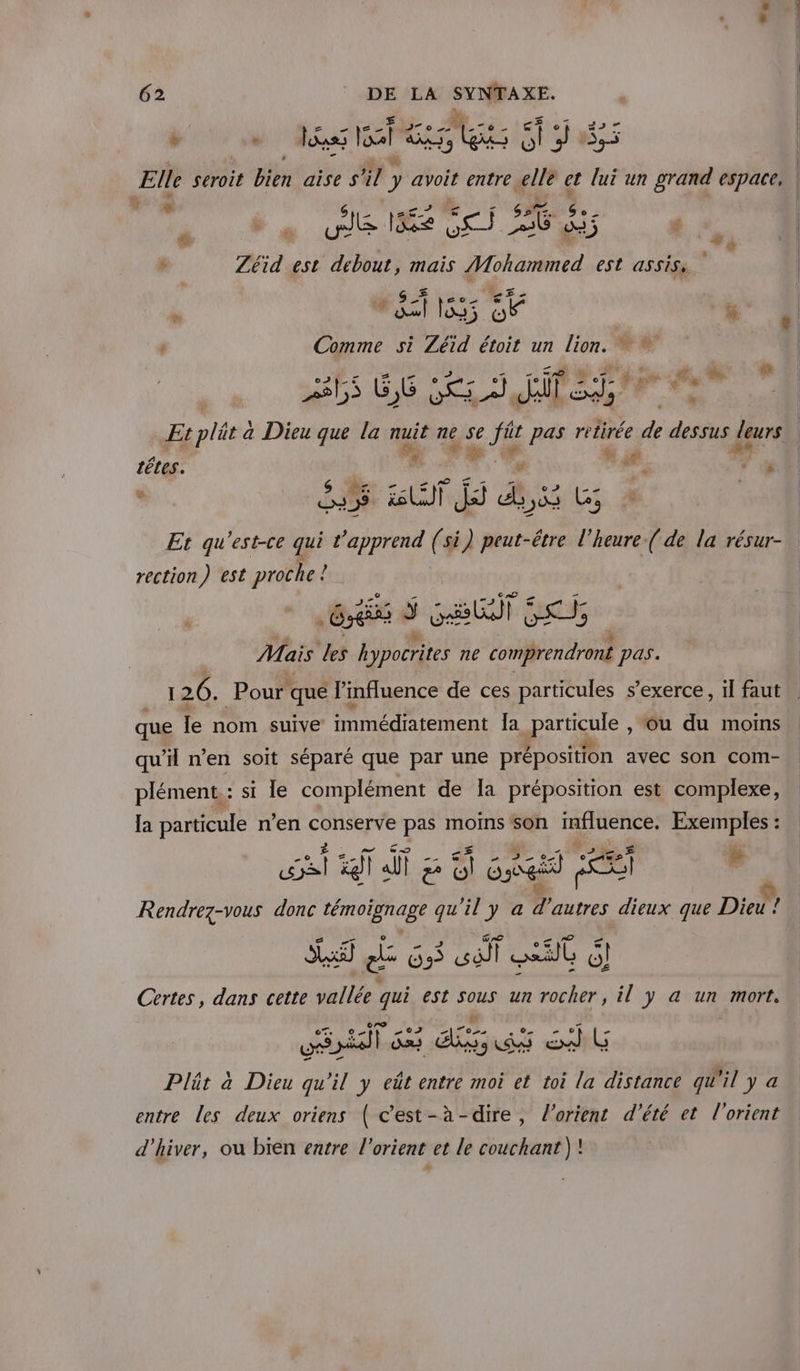 62 DE LA SYNTAXE.
تَوَدُّ لَوْ أَنَّ بَيْنَهَا وَبَيْنَهُ أَمَدًا بَعِيدًا
Elle seroit bien aise s'il y avoit entre elle et lui un grand espace,
زَيْدٌ قَائِمٌ لٰكِنَّ مُحَمَّدًا جَالِسٌ
Zéïd est debout, mais Mohammed est assis,
كَأَنَّ زَيْدًا أَسَدٌ
Comme si Zéïd étoit un lion.
وَلَيْتَ ٱللَّيْلَ لَمْ يَكُنْ فَارَقَا ذَرَاهُمْ
Et plût à Dieu que la nuit ne se fût pas retirée de dessus leurs
têtes.
وَمَا يُدْرِيكَ لَعَلَّ ٱلسَّاعَةَ قَرِيبٌ
Et qu'est-ce qui t'apprend (si) peut-être l'heure (de la résur-
rection) est proche!
وَلٰكِنَّ ٱلْمُنَافِقِينَ لَا يَفْقَهُونَ
Mais les hypocrites ne comprendront pas.
126. Pour que l'influence de ces particules s'exerce, il faut
que le nom suive immédiatement la particule, ou du moins
qu'il n'en soit séparé que par une préposition avec son com-
plément : si le complément de la préposition est complexe,
la particule n'en conserve pas moins son influence. Exemples :
أَئِنَّكُمْ لَتَشْهَدُونَ أَنَّ مَعَ ٱللّٰهِ آلِهَةً أُخْرَى
Rendrez-vous donc témoignage qu'il y a d'autres dieux que Dieu!
إِنَّ بِٱلشِّعْبِ ٱلَّذِى دُونَ سَلْعٍ لَقَتِيلًا
Certes, dans cette vallée qui est sous un rocher, il y a un mort.
يَا لَيْتَ بَيْنِى وَبَيْنَكَ بُعْدَ ٱلْمَشْرِقَيْنِ
Plût à Dieu qu'il y eût entre moi et toi la distance qu'il y a
entre les deux oriens (c'est-à-dire, l'orient d'été et l'orient
d'hiver, ou bien entre l'orient et le couchant)!